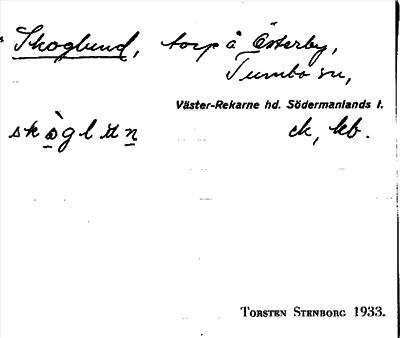 Skoglund, torp å Österby,
Tumbo sn,
Väster-Rekarne hd. Södermanlands l.
skòglun ek, kb.
TORSTEN STENBORG 1933.